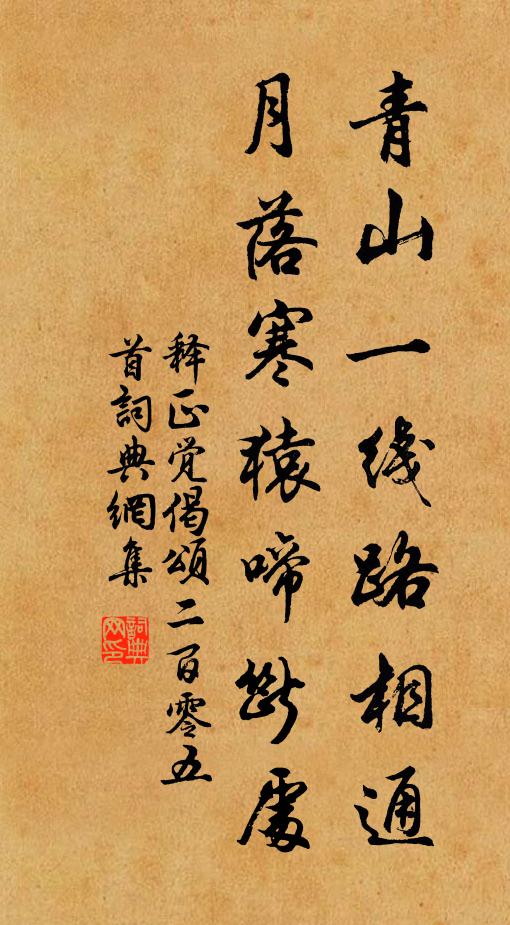 青山一线路相通
月落寒猿啼断處
释正觉偈頌二百零五
首詞典網集
詞典网印